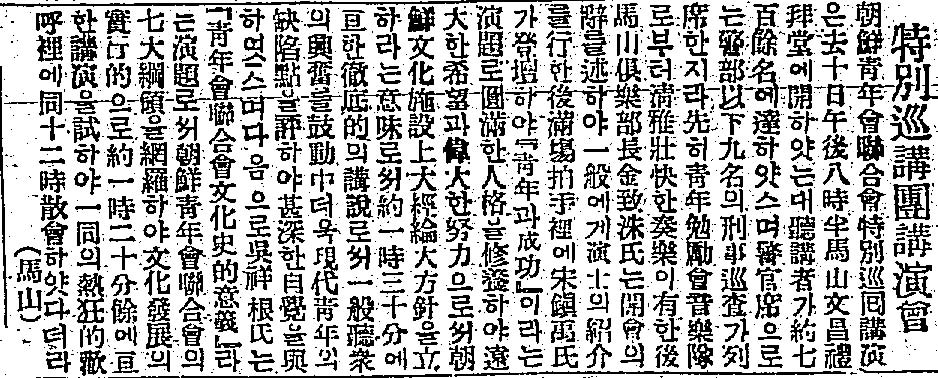 特別巡講團講演會
朝鮮靑年會聯合會特別巡回講演
은去十日午後八時半馬山文昌禮
拜堂에開하얏는대聽講者가約七
百餘名에達하얏스며警官席으로
는警部以下九名의刑事巡査가列
席한지라先히靑年勉勵會音樂隊
로부터淸雅壯快한奏樂이有한後
馬山俱樂部長金致洙氏는開會의
辭를述하야一般에게演士의紹介
를行한後滿場拍手裡에宋鎭禹氏
가登壇하야『靑年과成功』이라는
演題로圓滿한人格을修養하야遠
大한希望과偉大한努力으로써朝
鮮文化施設上大經綸大方針을立
하라는意味로써約一時三十分에
亘한徹底的의講說로써一般聽衆
의興奮을鼓動中더욱現代靑年의
缺陷點을評하야甚深한自覺을與
하엿스며다음으로吳祥根氏는
『靑年會聯合會文化史的意義』라
는演題로써朝鮮靑年會聯合會의
七大綱領을網羅하야文化發展의
實行的으로約一時二十分餘에亘
한講演을試하야一同의熱狂的歡
呼裡에同十二時散會하얏다더라
(馬山)